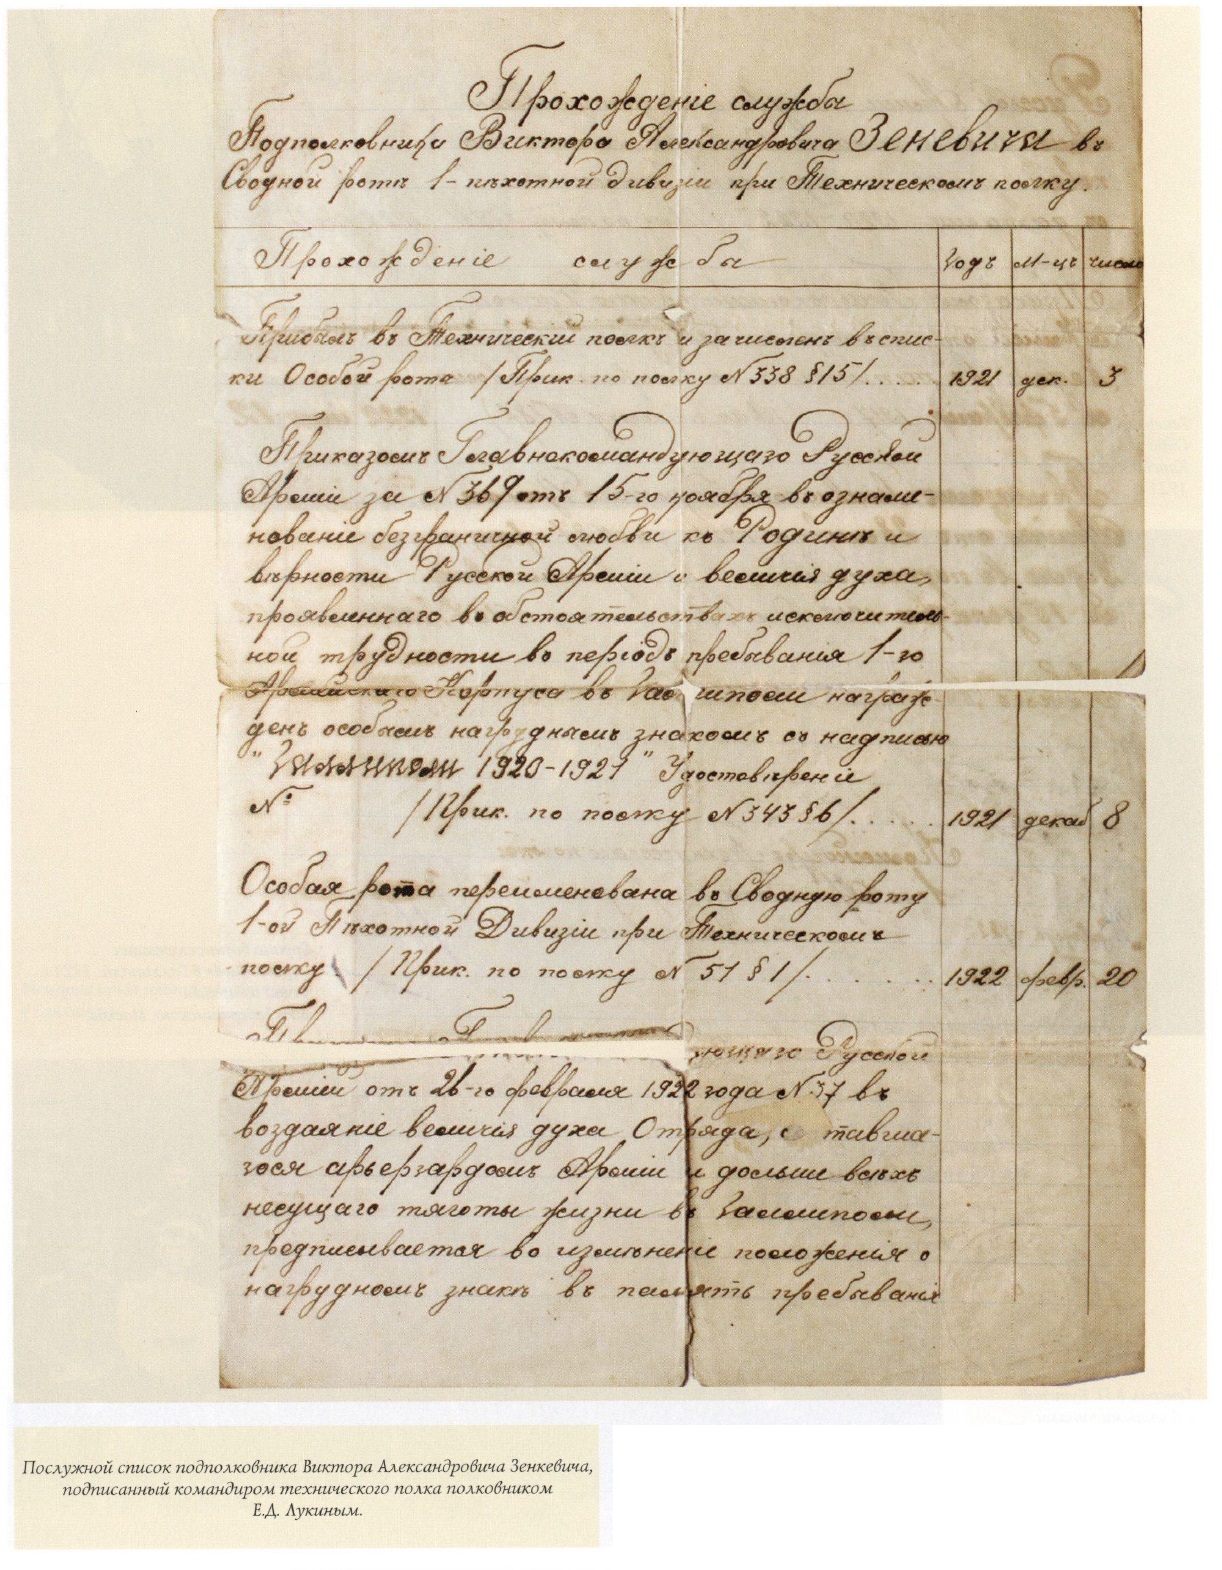 Прохожденіе службы
Подполковника Виктора Александровича Зеневича въ
Сводной ротѣ 1-й пѣхотной дивизіи при Техническомъ полку.
Прохожденіе службы Годъ М-цъ число
Прибылъ въ Техническій полкъ и зачисленъ въ спис-
ки Особой роты /Прик. по полку № 338 §15/..... 1921 дек. 3
Приказомъ Главнокомандующаго Русской
Арміи за № 369 отъ 15-го ноября въ ознаме-
нованіе безграничной любви къ Родинѣ и
вѣрности Русской Арміи и величія духа,
проявленнаго въ обстоятельствахъ исключитель-
ной трудности въ періодъ пребыванія 1-го
Армейскаго Корпуса въ Галлиполи награж-
денъ особымъ нагруднымъ знакомъ съ надписью
"Галлиполи 1920-1921" Удостовѣреніе
№ /Прик. по полку № 343 §6/..... 1921 декаб 8
Особая рота переименована въ Сводную роту
1-ой Пѣхотной Дивизіи при Техническомъ
полку /Прик. по полку № 51 §1/....... 1922 февр. 20
ющаго Русской
Арміей отъ 26-го февраля 1922 года № 37 въ
воздаяніе величія духа Отряда, ставша-
гося арьергардомъ Арміи и дольше всѣхъ
несущаго тяготы жизни въ Галлиполи,
предписывается во измѣненіе положенія о
нагрудномъ знакѣ въ память пребыванія
Послужной список подполковника Виктора Александровича Зенкевича,
подписанный командиром технического полка полковником
Е.Д. Лукиным.